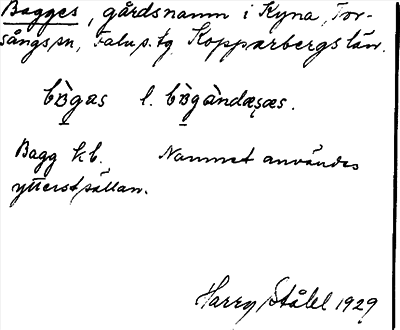 Bagges, gårdsnamn i Kyna, Tor-
sångs sn, Falu s. tg. Kopparbergs län.
bàgas l. bàgàndæsæs.
Bagg kb. Namnet användes
ytterst sällan.
Harry Ståhl 1929